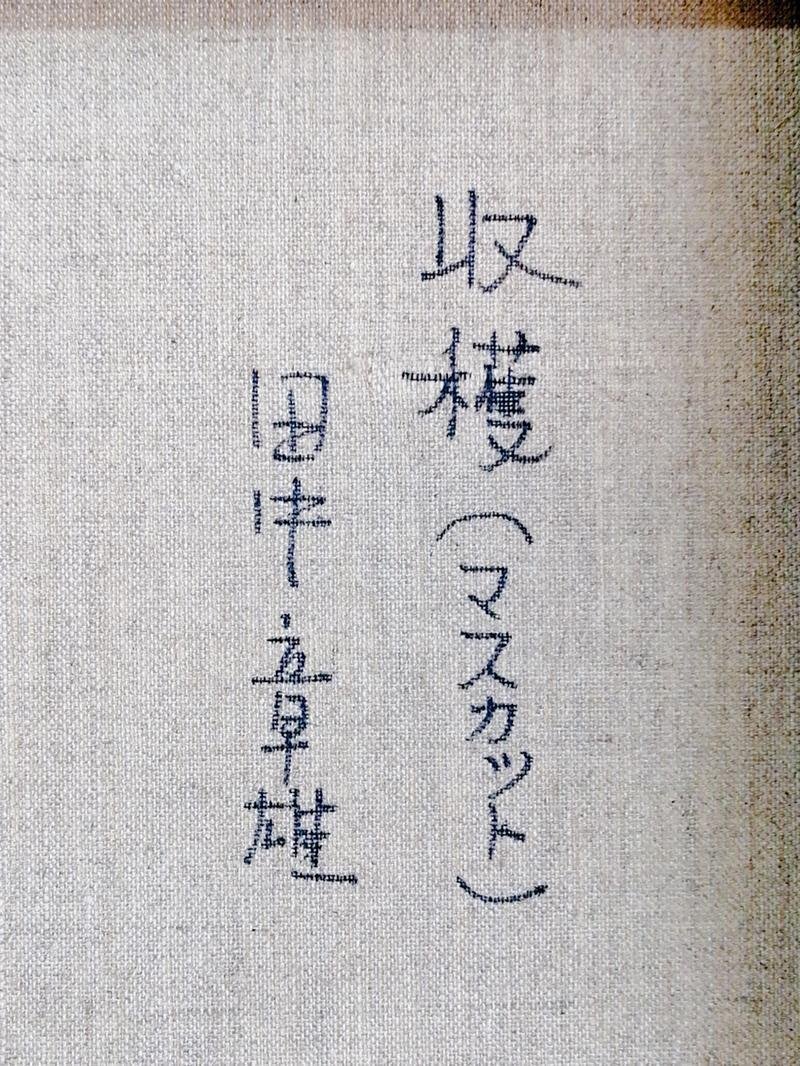 収穫（マスカット）
田中章雄